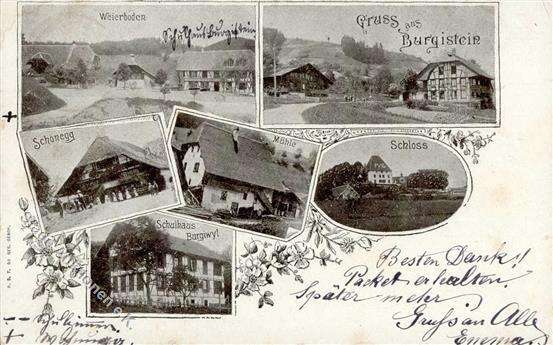 Weierboden
Schulhaus Burgistein
Gruss aus
Burgistein
Schönegg
Mühle
Schloss
Schulhaus
Burgiwyl
Besten Dank!!
Packet erhalten.
Später mehr.
Gruss an Alle
Emma